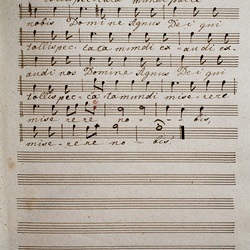 tollis peccata mundi parce
nobis Domine Agnus Dei qui
tollis pec- cata mundi ex- audi ex-
audi nos Domine Agnus Dei qui
tollis pec- ca- ta mundi miserere
mise rere no- - - bis,
mise- rere no- bis.